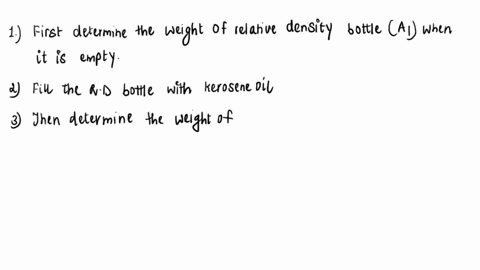 1.) First determine the weight of relative density bottle (A1) when
it is empty.
2) Fill the R.D bottle with kerosene oil
3) Then determine the weight of